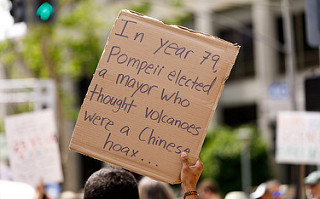 In year 79,
Pompeii elected
a mayor who
thought volcanoes
were a Chinese
hoax...